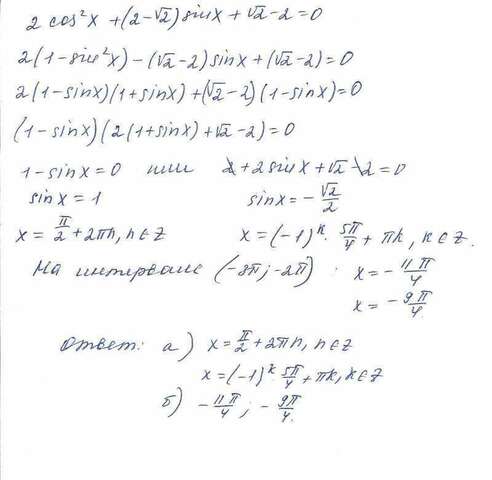 2 cos²x + (2-√2) sinx + √2 - 2 = 0
2(1-sin²x) - (√2-2) sinx + (√2-2) = 0
2(1-sinx)(1+sinx) + (√2-2)(1-sinx) = 0
(1-sinx)(2(1+sinx) + √2-2) = 0
1-sinx = 0 или 2 + 2sinx + √2 - 2 = 0
sinx = 1 sinx = -√2/2
x = π/2 + 2πn, n∈Z x = (-1)^k · 5π/4 + πk, k∈Z.
На интервале (-3π; -2π) : x = -11π/4
x = -9π/4.
Ответ: а) x = π/2 + 2πn, n∈Z
x = (-1)^k · 5π/4 + πk, k∈Z
б) -11π/4 ; -9π/4.